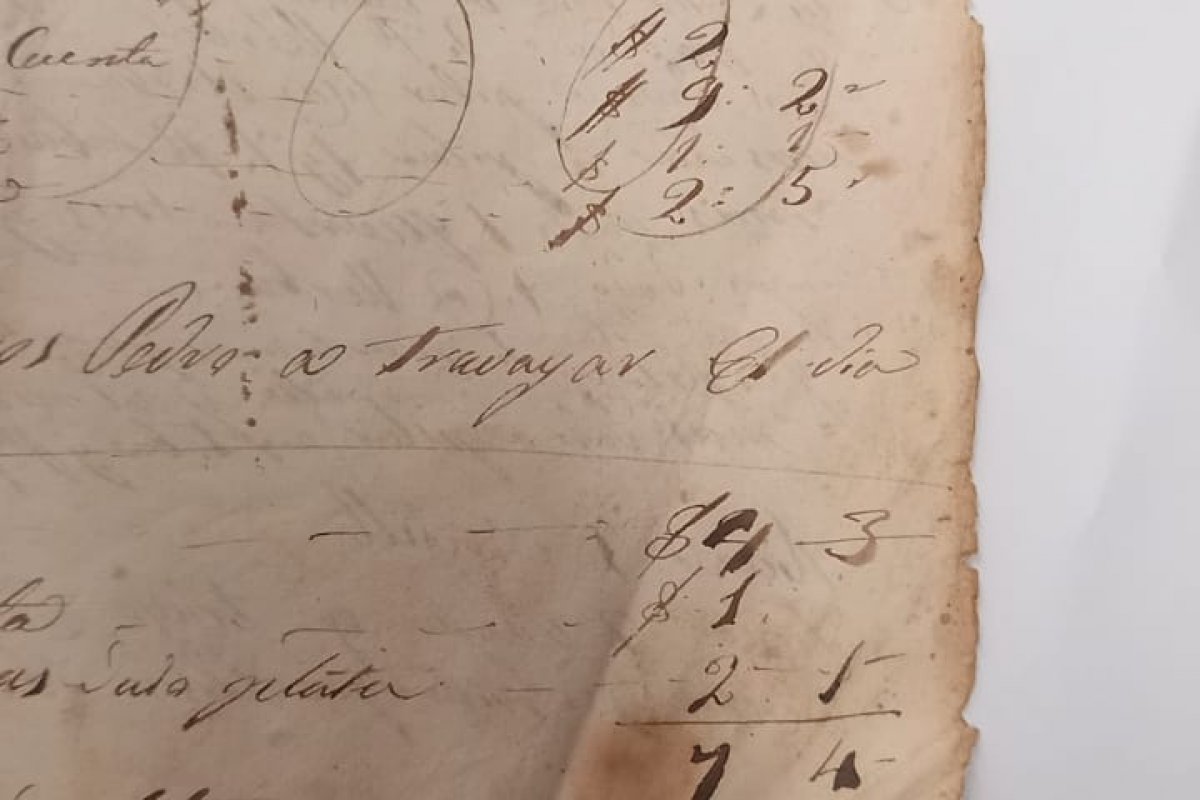 Cuenta $ 2
$ 9 2
$ 1 1
$ 2 5
os Pedro a Travayar El dia
$ 4 3
ta $ 1
as 2 1
7 4